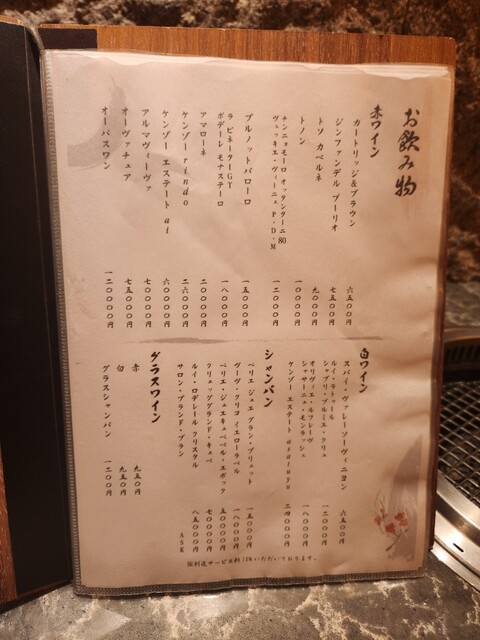 お飲み物
赤ワイン
カートリッジ&ブラウン 六五〇〇円
ジンファンデル プーリオ 七五〇〇円
トソ カベルネ 九〇〇〇円
トノン 一〇〇〇〇円
チンニョモーロ オッタンターニ80
ヴェッキエ・ヴィーニェ P・D・M 一二〇〇〇円
ブルノットバローロ 一五〇〇〇円
ラ ピネーターGY
ボデーレ モナステーロ 一八〇〇〇円
アマローネ 二〇〇〇〇円
ケンゾー rindo 二六〇〇〇円
ケンゾー エステート ai 六〇〇〇〇円
アルマヴィーヴァ 七〇〇〇〇円
オーヴァチュア 七五〇〇〇円
オーパスワン 一二〇〇〇〇円
白ワイン
スパイ・ヴァレーソーヴィニヨン 六五〇〇円
ルイ・ラトゥール
シャブリ・プルミエ・クリュ 一二〇〇〇円
オリヴィエ・ルフレーヴ
シャサーニュ・モンラッシェ 一八〇〇〇円
ケンゾー エステート asatsuyu 二四〇〇〇円
シャンパン
ペリエ ジュエ グラン・ブリュット 一五〇〇〇円
ヴーヴ・クリコ イエローラベル 一八〇〇〇円
ペリエ・ジュエキュベベル・エポック 五〇〇〇〇円
クリュッググランド・キュベ 七〇〇〇〇円
ルイ・ロデレール クリスタル 八五〇〇〇円
サロン・ブランド・ブラン ASK
グラスワイン
赤 九五〇円
白 九五〇円
グラスシャンパン 一二〇〇円
個別途サービス料
いただいております。